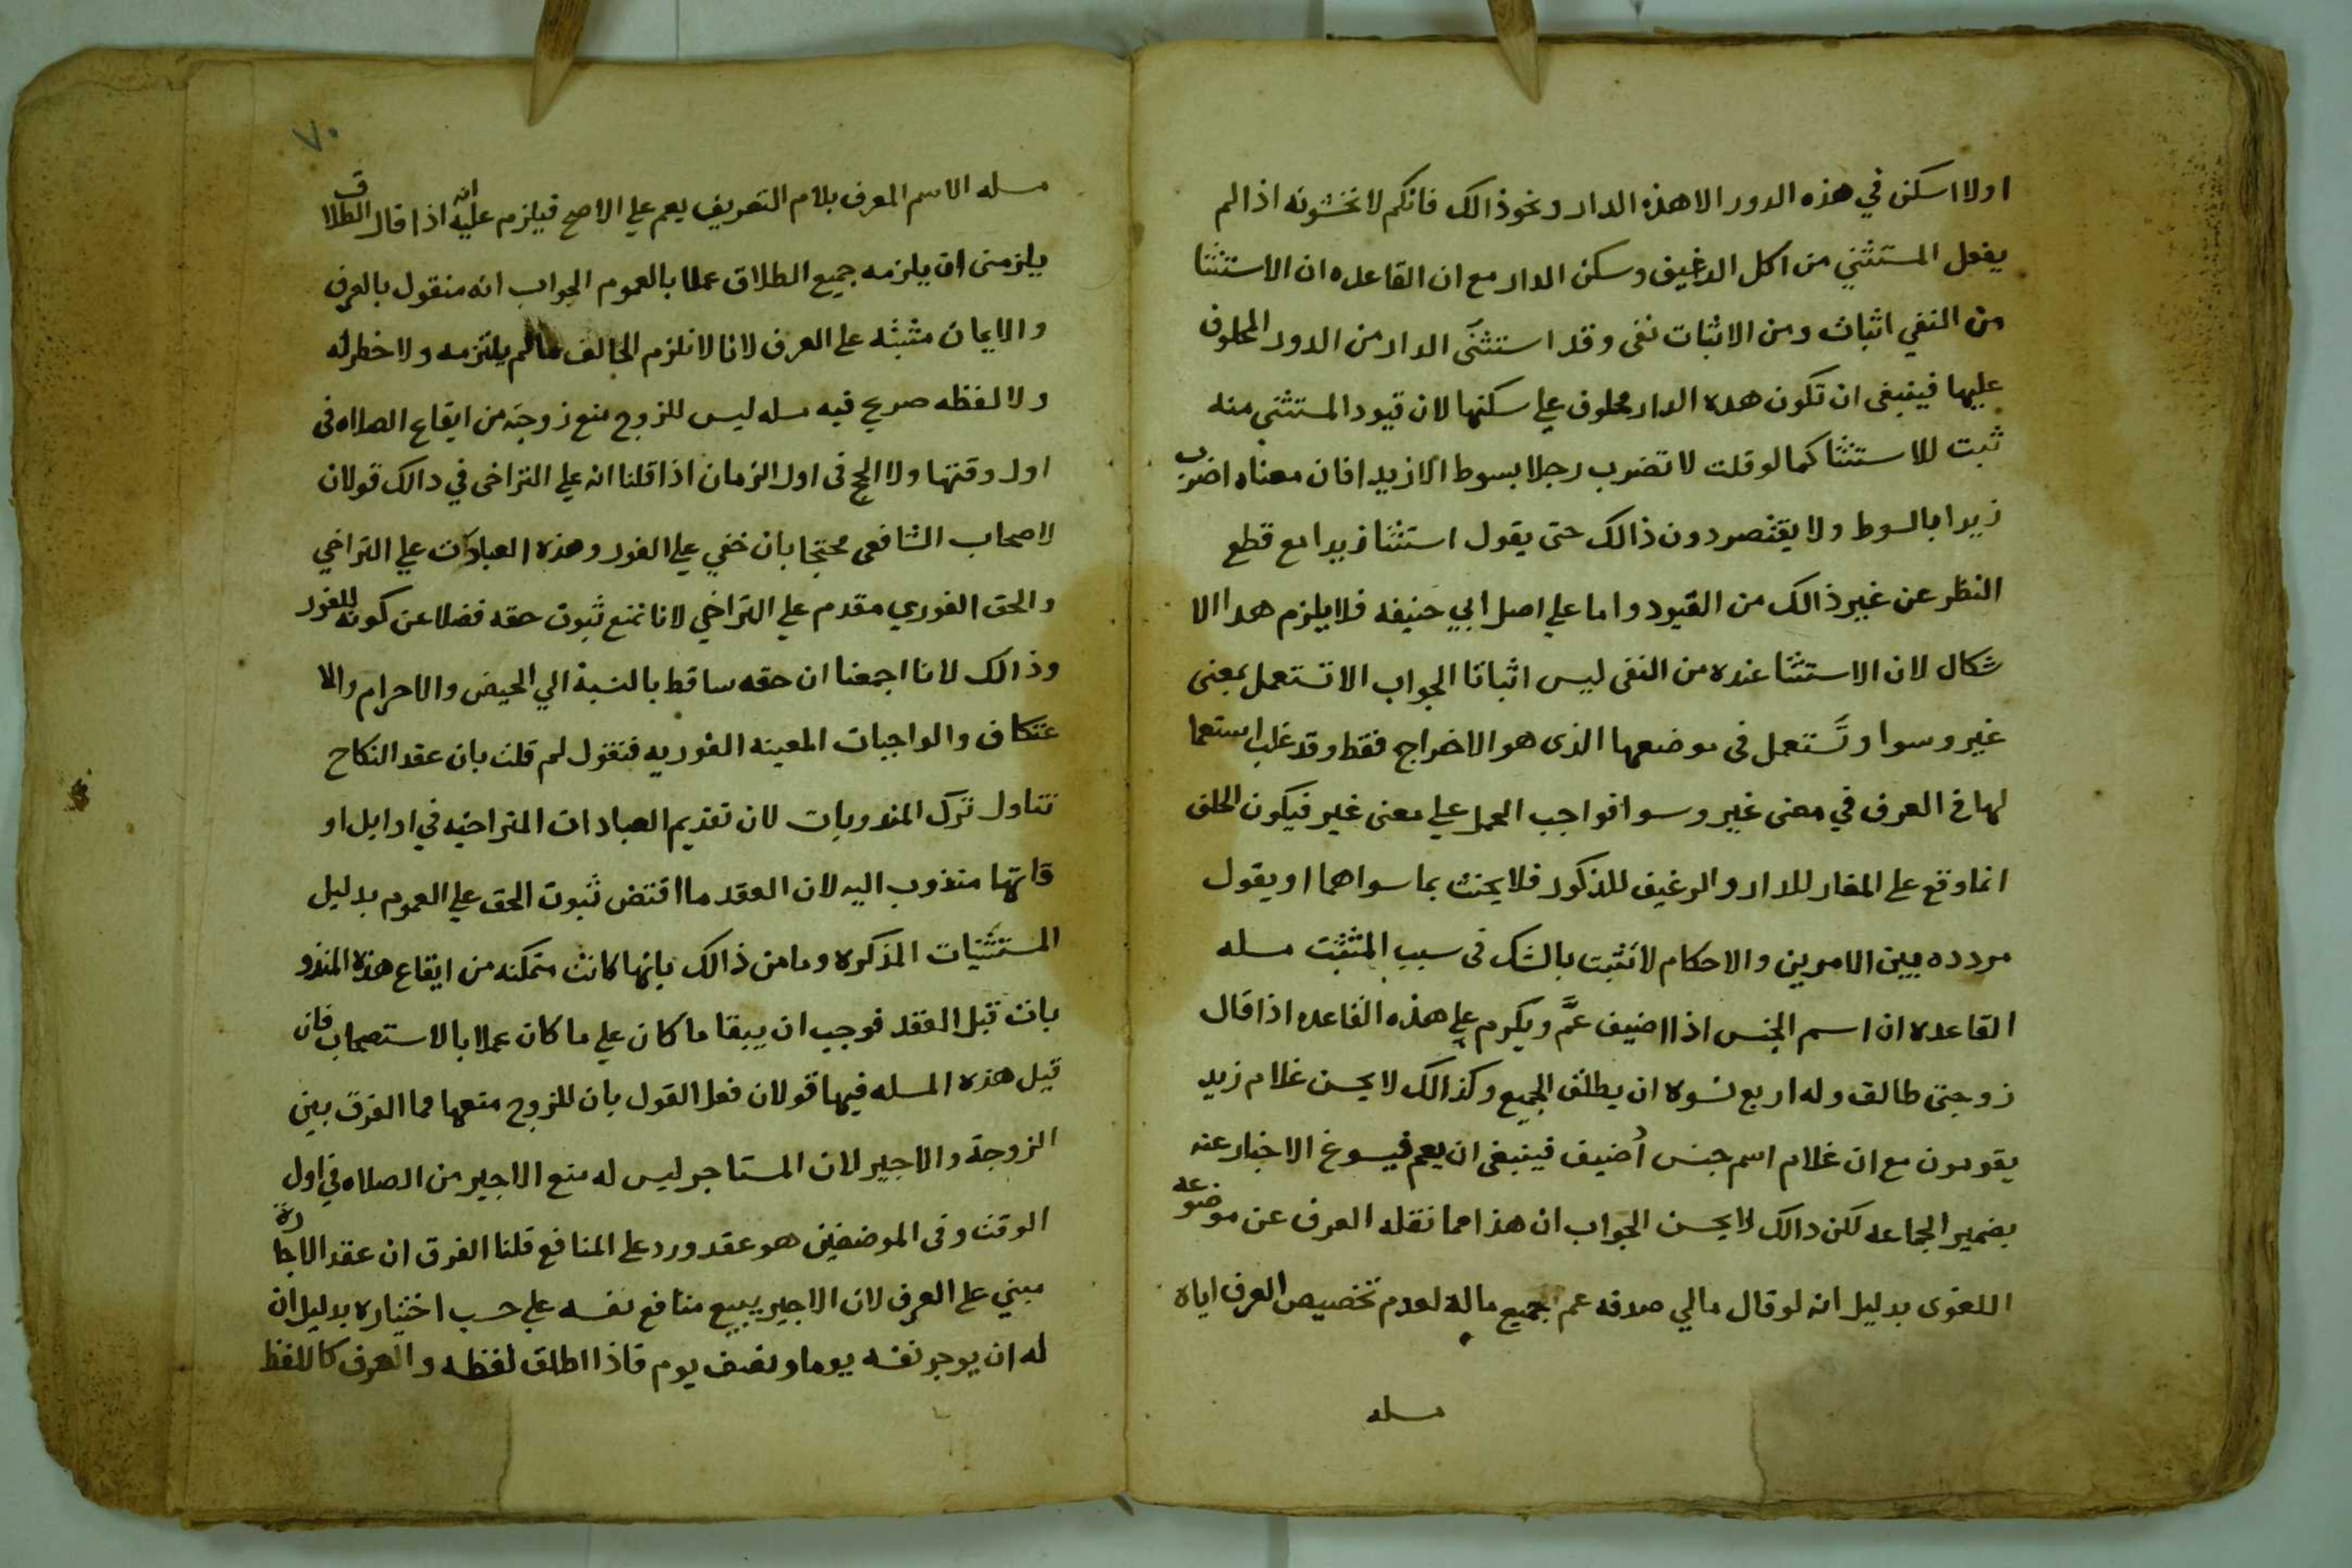 اولا اسكن في هذه الدور الا هذه الدار ونحو ذالك فانكم لا تحنثونه اذا لم
يفعل المستثني من اكل الرغيف وسكن الدار مع ان القاعده ان الاستثنا
من النفي اثبات ومن الاثبات نفى وقد استثنى الدار من الدور المحلوف
عليها فينبغى ان تكون هده الدار محلوف علي سكنها لان قيود المستثنى منه
ثبت للاستثنا كما لو قلت لا تضرب رجلا بسوط الا زيدا فان معناه اضرب
زيدا بالسوط ولا يقتصر دون ذالك حتى يقول استثنا زيدا مع قطع
النظر عن غير ذالك من القيود واما علي اصل ابي حنيفه فلا يلزم هدا الا
شكال لان الاستثنا عنده من النفى ليس اثباتا الجواب الا تستعمل بمعنى
غير وسوا وتستعمل فى موضعها الذى هو الاخراج فقط وقد غلب استعما
لها في العرف في معنى غير وسوا فواجب الحمل علي معنى غير فيكون الحلف
انما وقع على المغاير للدار والرغيف للذكور فلا يحنث بما سواهما او يقول
مردده بين الامرين والاحكام لا تثبت بالشك فى سبب المثبت مسله
القاعده ان اسم الجنس اذا اضيف عمَّ ويكرم علي هذه القاعده اذا قال
زوجتى طالق وله اربع نسوه ان يطلق الجميع وكذالك لا يحسن غلام زيد
يقومون مع ان غلام اسم جنس أضيف فينبغى ان يعم فيسوغ الاخبار عنه
بضمير الجماعه لكن دالك لا يحسن الجواب ان هذا مما نقله العرف عن موضوعه
اللغوى بدليل انه لو قال مالي صدقه عم جميع ماله لعدم تخصيص العرف اياه
مسله
٧٠
مسله الاسم المعرف بلام التعريف يعم علي الاصح فيلزم عليه انه اذا قال الطلاق
يلزمنى ان يلزمه جميع الطلاق عملا بالعموم الجواب انه منقول بالعرف
والايمان مثبته على العرف لانا لا نلزم الحالف مالم يلتزمه ولا خطر له
ولا لفظه صريح فيه مسله ليس للزوج منع زوجته من ايقاع الصلاه فى
اول وقتها ولا الحج فى اول الزمان اذا قلنا انه علي التراخى في دالك قولان
لاصحاب الشافعى محتجا بان حقي علي الفور وهذه العبادات علي التراخي
والحق الفوري مقدم علي التراخي لانا نمنع ثبوت حقه فضلا عن كونه للفور
وذالك لانا اجمعنا ان حقه ساقط بالنسبة الي الحيض والاحرام والا
عتكاف والواجبات المعينه الفوريه فنقول لم قلت بان عقد النكاح
تتاول ترك المندوبات لان تقديم العبادات المتراخيه في اوايل او
قاتها مندوب اليه لان العقد ما اقتض ثبوت الحق علي العموم بدليل
المستثنيات المذكره وما من ذالك بانها كانت متمكنه من ايقاع هذه المندو
بات قبل العقد فوجب ان يبقا ما كان علي ما كان عملا بالاستصحاب فان
قيل هذه المسله فيها قولان فعلا القول بان للزوج منعها فما الفرق بين
الزوجة والاجير لان المستاجر ليس له منع الاجير من الصلاه في اول
الوقت وفى الموضعين هو عقد ورد على المنافع قلنا الفرق ان عقد الاجارة
مبني على العرف لان الاجير يبيع منافع نفسه علي حسب اختياره بدليل ان
له ان يوجر نفسه يوما ونصف يوم فاذا اطلق لفظه والعرف كاللفظ